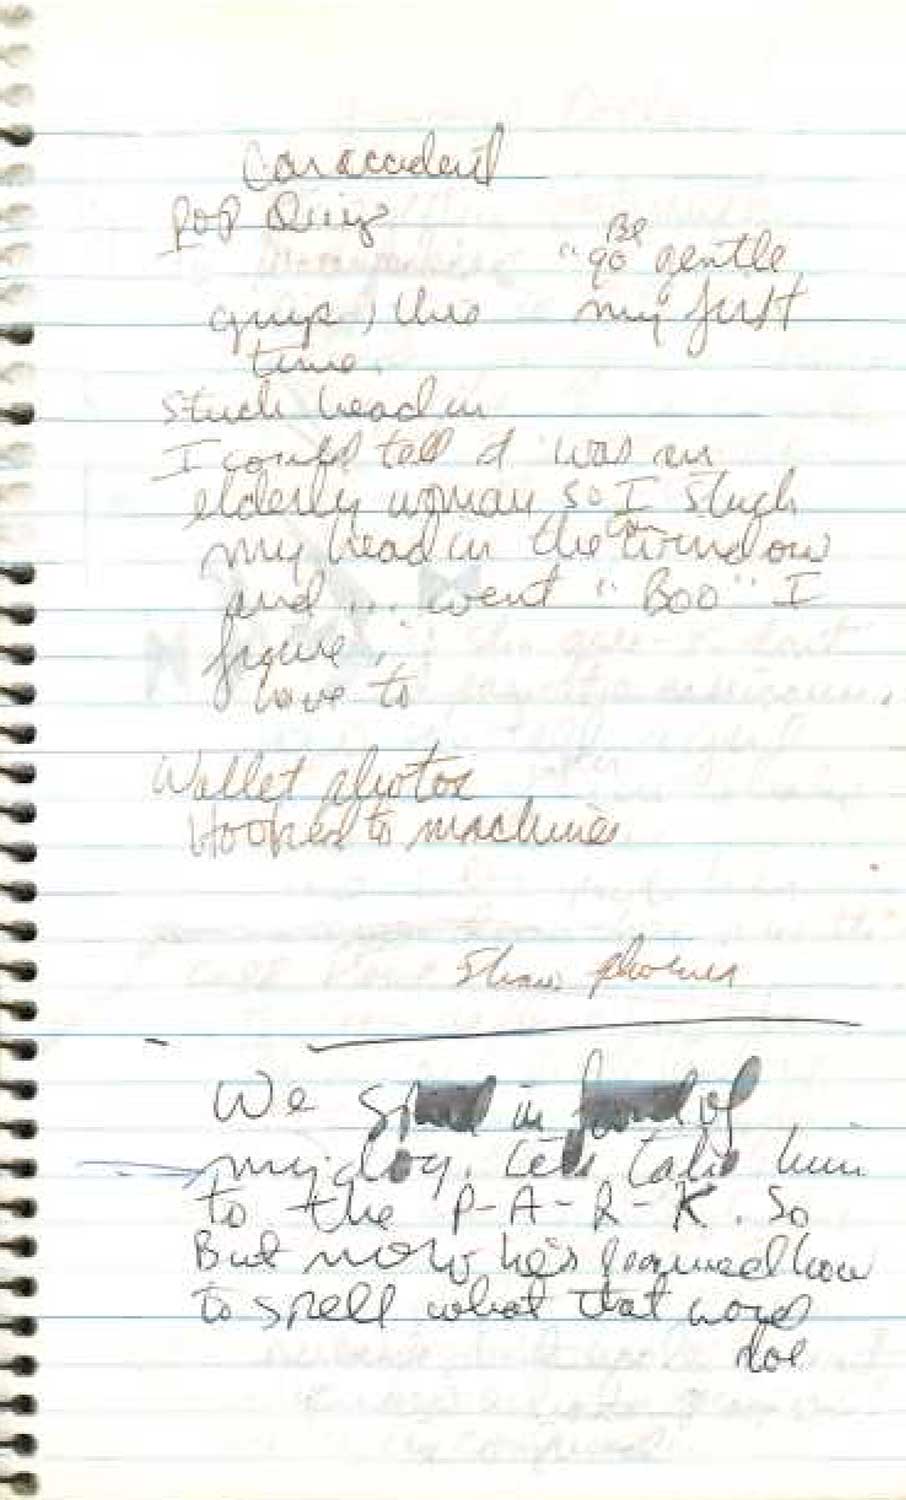 Car accident
Pop Quiz
Be
"go gentle
this my first
time.
Stuck head in
I could tell it was an
elderly woman so I stuck
my head in the window
and ... went "Boo" I
figure,
have to
Wallet photos
Hooked to machines
We in of
my dog. Let's take him
to the P-A-R-K. So
But now he's learned how
to spell what that word